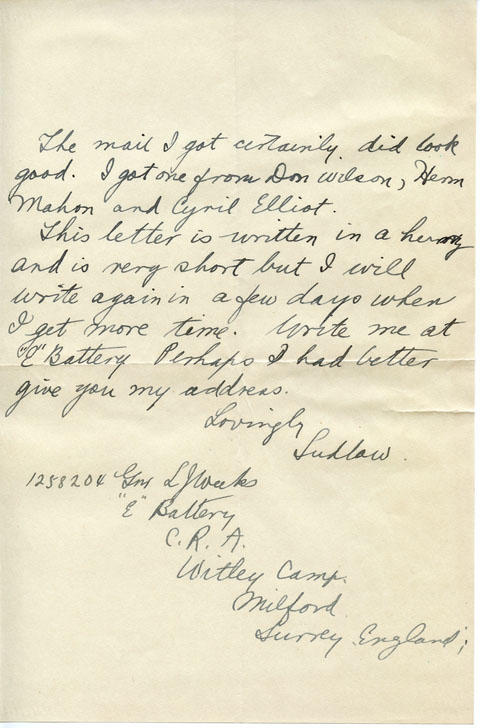 The mail I got certainly did look
good. I got one from Don Wilson, Herm
Mahon and Cyril Elliot.
This letter is written in a hurry
and is very short but I will
write again in a few days when
I get more time. Write me at
"E" Battery Perhaps I had better
give you my address.
Lovingly
Ludlow.
1258204 Gnr L J Weeks
"E" Battery
C. R. A.
Witley Camp.
Milford
Surrey England;